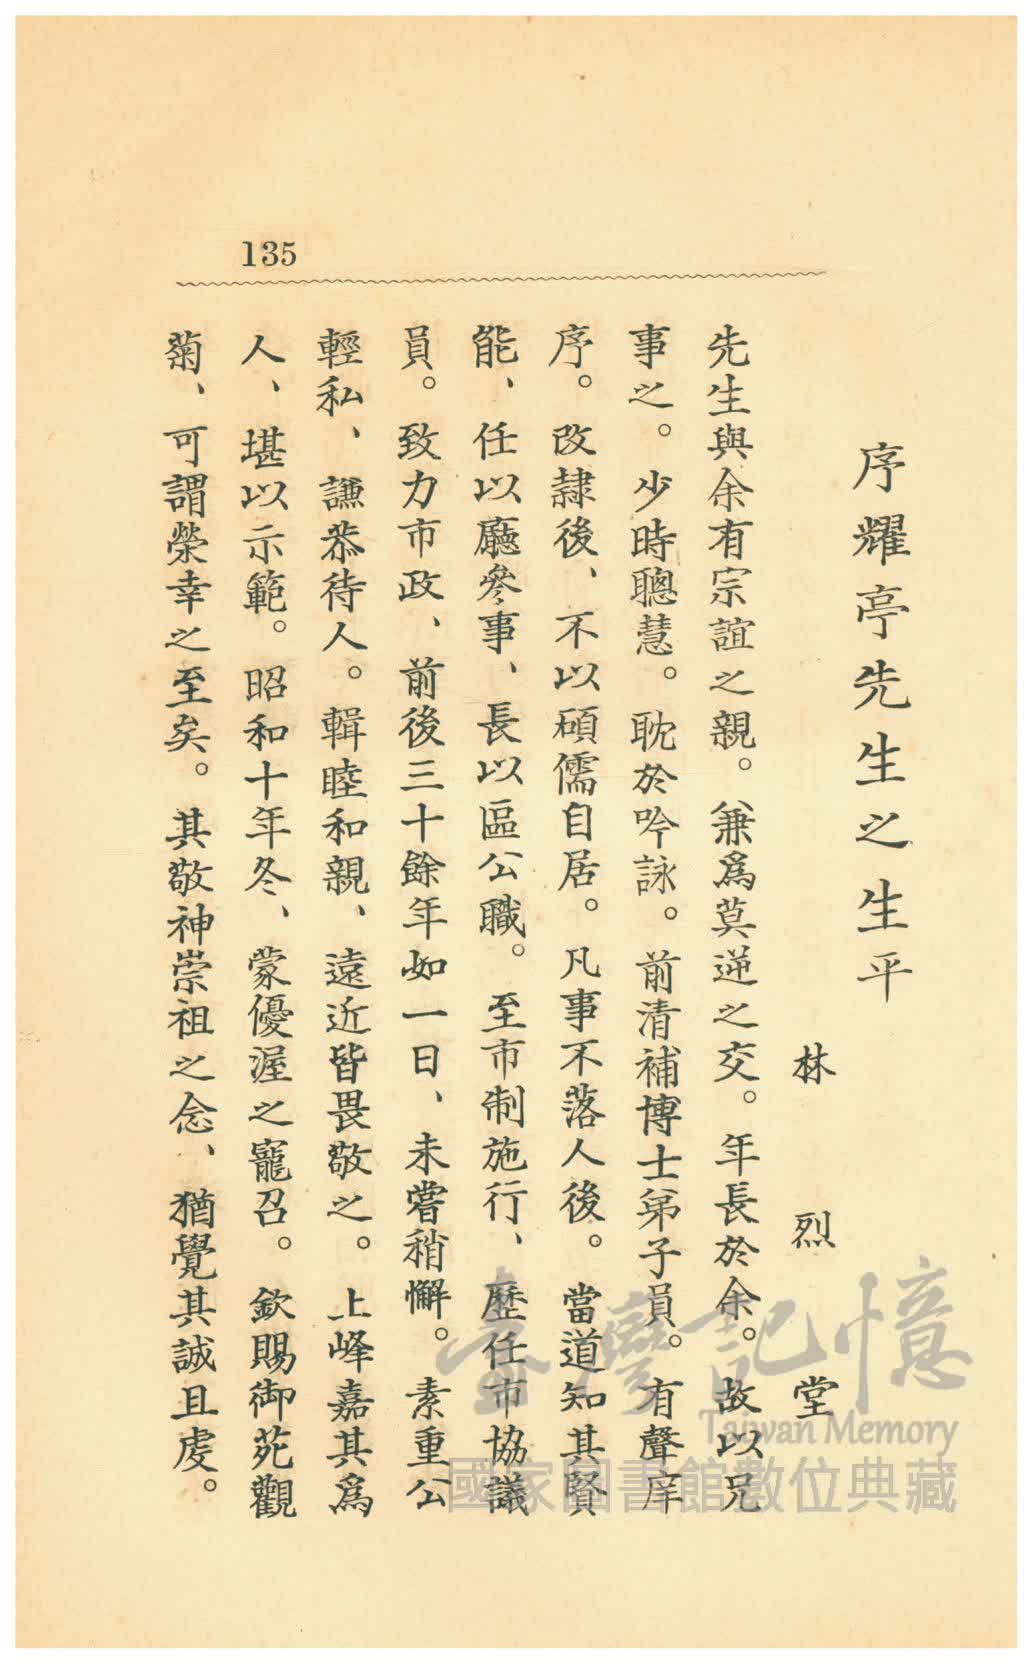 135
序耀亭先生之生平
林烈堂
先生與余有宗誼之親。兼爲莫逆之交。年長於余。故以兄
事之。少時聰慧。耽於吟詠。前清補博士弟子員。有聲庠
序。改隸後、不以碩儒自居。凡事不落人後。當道知其賢
能、任以廳參事、長以區公職。至市制施行、歷任市協議
員。致力市政、前後三十餘年如一日、未嘗稍懈。素重公
輕私、謙恭待人。輯睦和親、遠近皆畏敬之。上峰嘉其爲
人、堪以示範。昭和十年冬、蒙優渥之寵召。欽賜御苑觀
菊、可謂榮幸之至矣。其敬神崇祖之念、猶覺其誠且虔。
臺灣記憶
Taiwan Memory
國家圖書館數位典藏